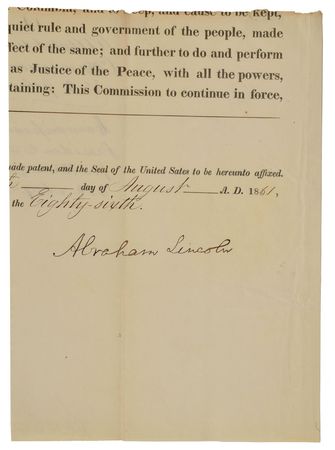 and cause to be kept,
quiet rule and government of the people, made
ffect of the same; and further to do and perform
as Justice of the Peace, with all the powers,
taining: This Commission to continue in force,
made patent, and the Seal of the United States to be hereunto affixed.
day of August A. D. 1861,
the Eighty-sixth.
Abraham Lincoln